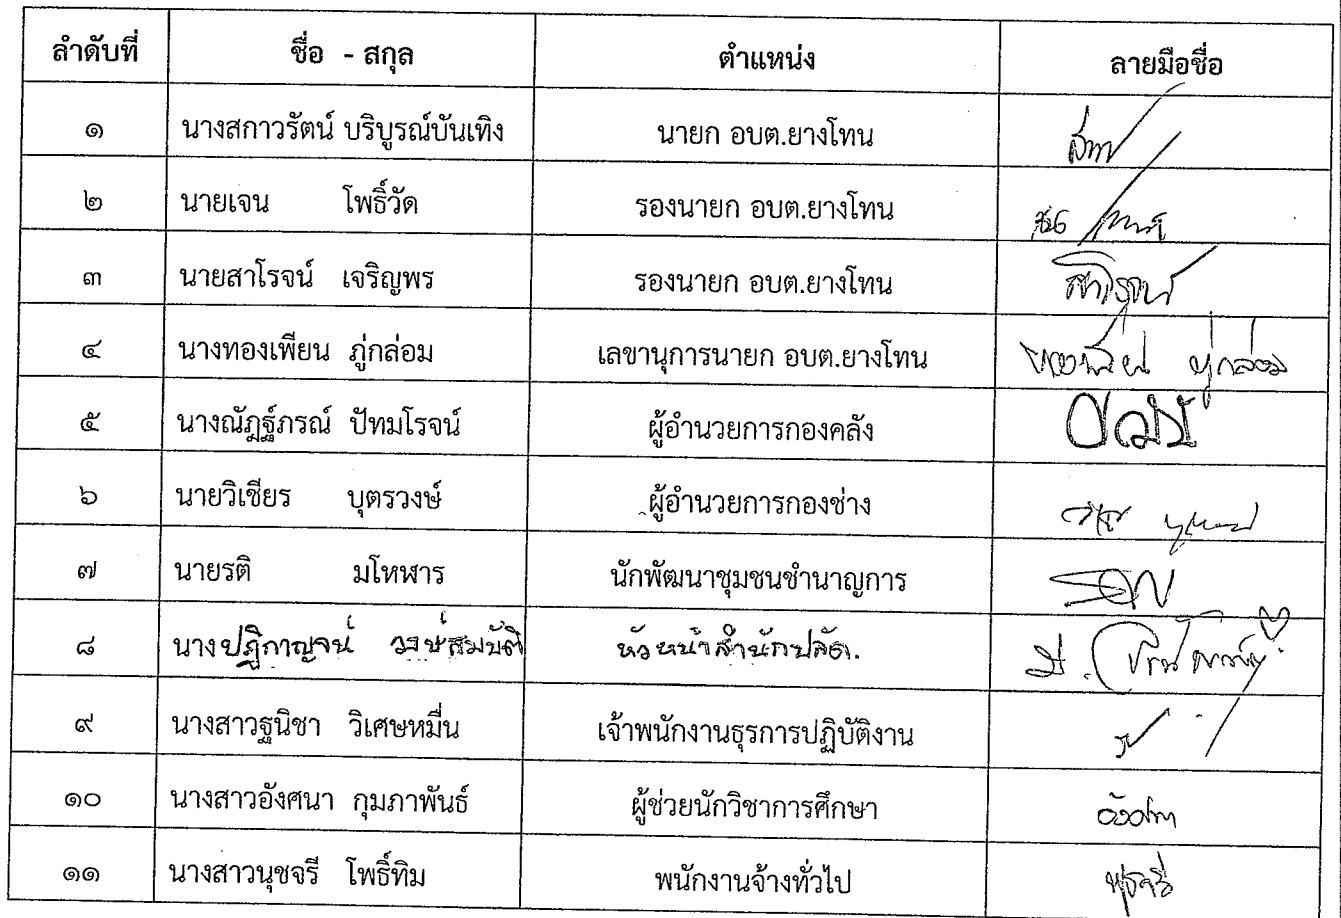 ลำดับที่ ชื่อ - สกุล ตำแหน่ง ลายมือชื่อ
๑ นางสกาวรัตน์ บริบูรณ์บันเทิง นายก อบต.ยางโทน
๒ นายเจน โพธิ์วัด รองนายก อบต.ยางโทน
๓ นายสาโรจน์ เจริญพร รองนายก อบต.ยางโทน สาโรจน์
๔ นางทองเพียน ภู่กล่อม เลขานุการนายก อบต.ยางโทน ทองเพียน ภู่กล่อม
๕ นางณัฎฐ์ภรณ์ ปัทมโรจน์ ผู้อำนวยการกองคลัง
๖ นายวิเชียร บุตรวงษ์ ผู้อำนวยการกองช่าง
๗ นายรติ มโหฬาร นักพัฒนาชุมชนชำนาญการ
๘ นางปฏิกาญจน์ วงษ์สมบัติ หัวหน้าสำนักปลัด.
๙ นางสาวฐนิชา วิเศษหมื่น เจ้าพนักงานธุรการปฏิบัติงาน
๑๐ นางสาวอังศนา กุมภาพันธ์ ผู้ช่วยนักวิชาการศึกษา อังศนา
๑๑ นางสาวนุชจรี โพธิ์ทิม พนักงานจ้างทั่วไป นุชจรี